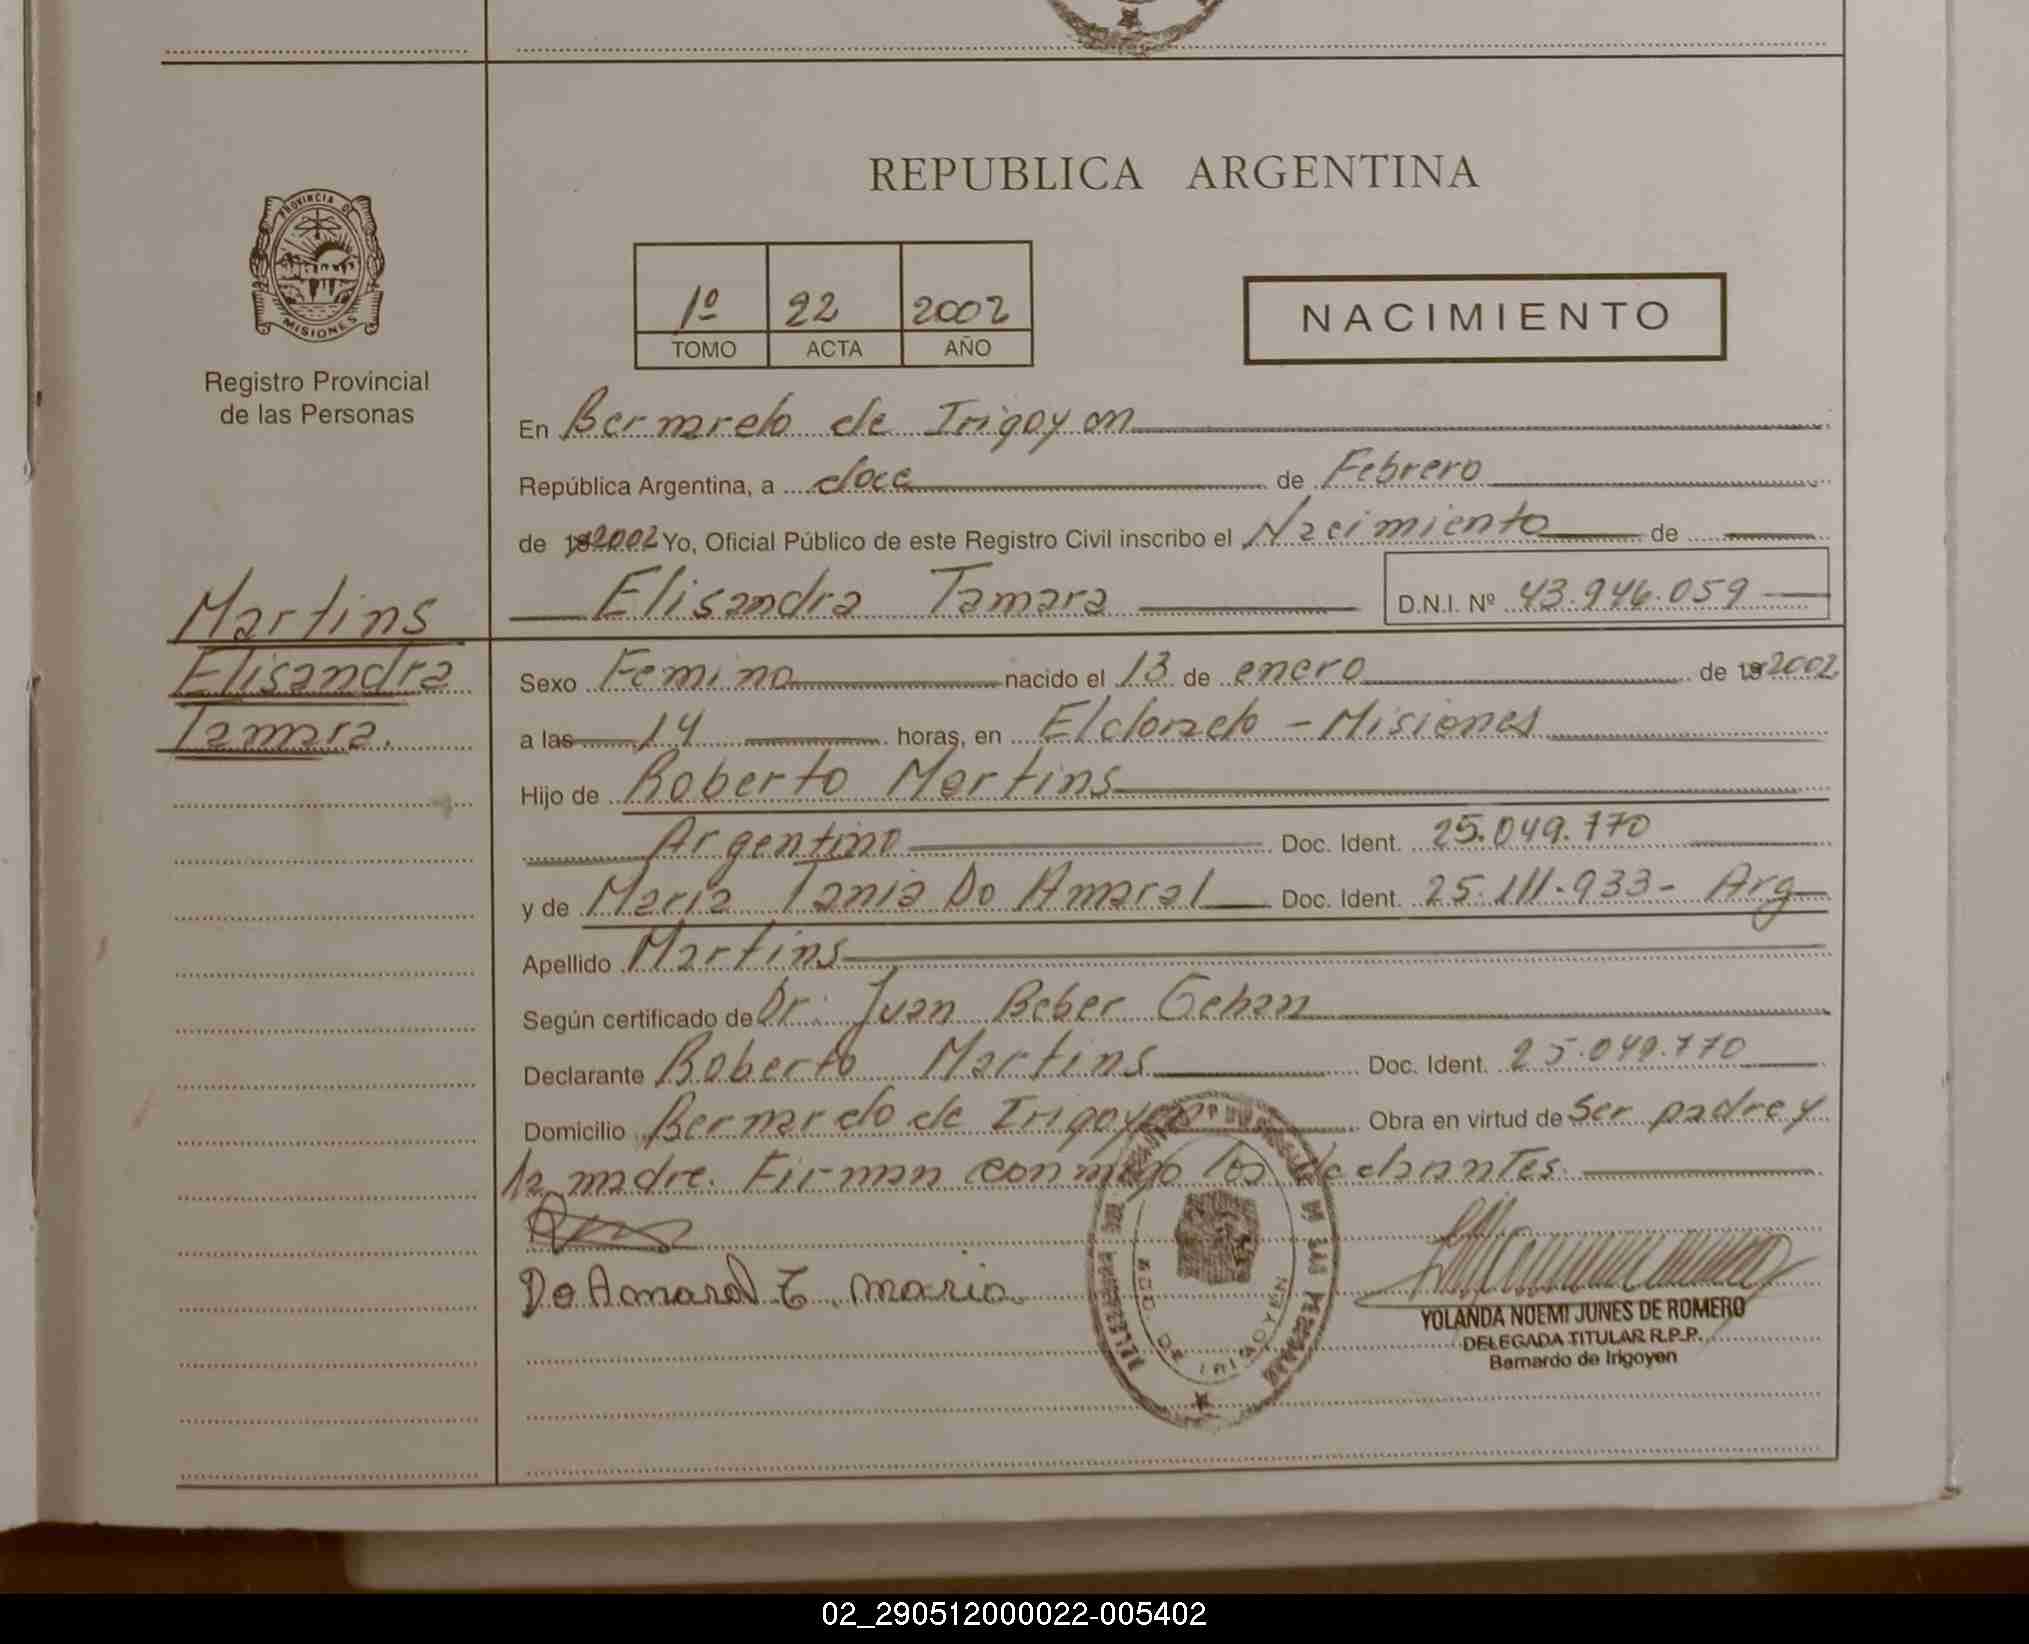 REPUBLICA ARGENTINA
PROVINCIA DE
MISIONES
Registro Provincial
de las Personas
1º 22 2002
TOMO ACTA AÑO
NACIMIENTO
En Bernardo de Irigoyen
República Argentina, a doce de Febrero
de 192002 Yo, Oficial Público de este Registro Civil inscribo el Nacimiento de
Elisandra Tamara D.N.I. Nº 43.946.059
Martins
Elisandra
Tamara.
Sexo Femino nacido el 13 de enero de 192002
a las 14 horas, en Eldorado - Misiones
Hijo de Roberto Martins
Argentino Doc. Ident. 25.049.770
y de Maria Tania Do Amaral Doc. Ident. 25.111.933- Arg
Apellido Martins
Según certificado de Dr. Juan Beber Gehan
Declarante Roberto Martins Doc. Ident. 25.049.770
Domicilio Bernardo de Irigoyen Obra en virtud de Ser padre y
la madre. Firman conmigo los declarantes.
Do Amaral T. maria
BDO. DE IRIGOYEN
YOLANDA NOEMI JUNES DE ROMERO
DELEGADA TITULAR R.P.P.
Bernardo de Irigoyen
02_290512000022-005402